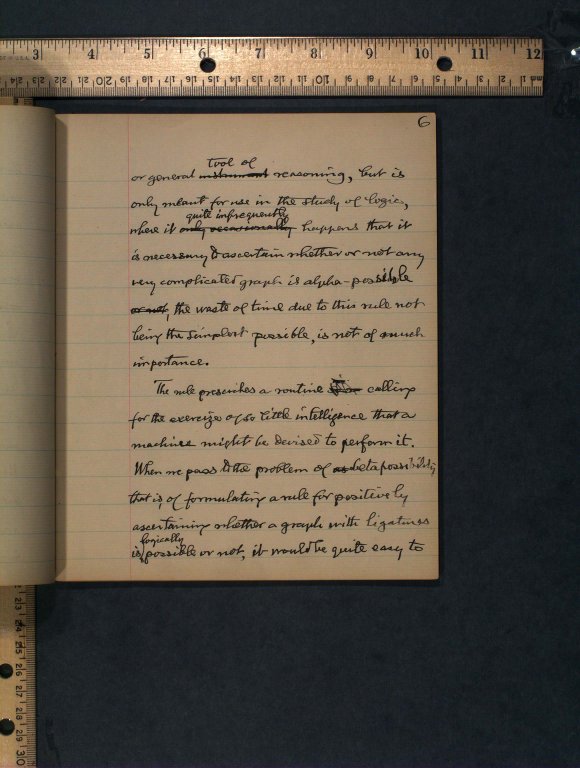 3 4 5 6 7 8 9 10 11 12
6
tool of
or general instrument reasoning, but is
only meant for use in the study of logic,
quite infrequently
where it only occasionally happens that it
is necessary to ascertain whether or not any
very complicated graph is alpha-possible
or not, the waste of time due to this rule not
being the simplest possible, is not of much
importance.
The rule prescribes a routine calling
for the exercize of so little intelligence that a
machine might be devised to perform it.
When we pass to the problem of as beta possibility
that is, of formulating a rule for positively
ascertaining whether a graph with ligatures
logically
is possible or not, it would be quite easy to